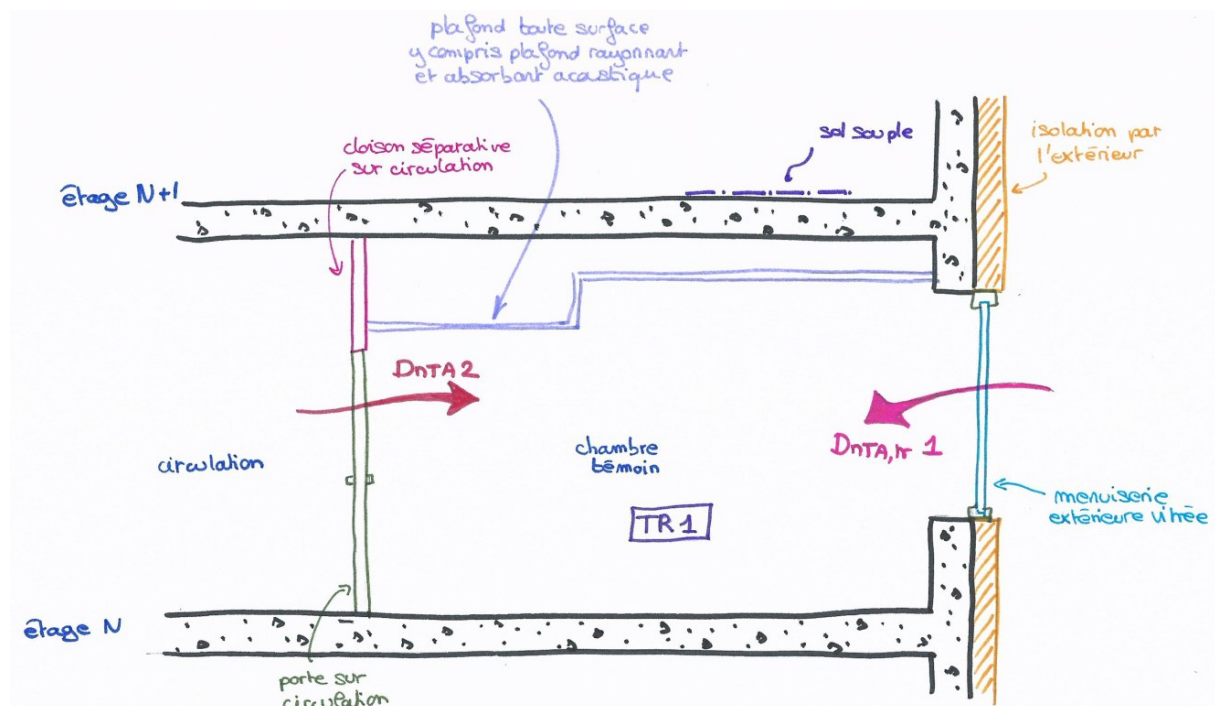 plafond toute surface
y compris plafond rayonnant
et absorbant acoustique
cloison séparative
sur circulation
sol souple
isolation par
l'extérieur
étage N+1
DnTA 2
DnTA,tr 1
circulation
chambre
témoin
TR 1
menuiserie
extérieure vitrée
étage N
porte sur
circulation